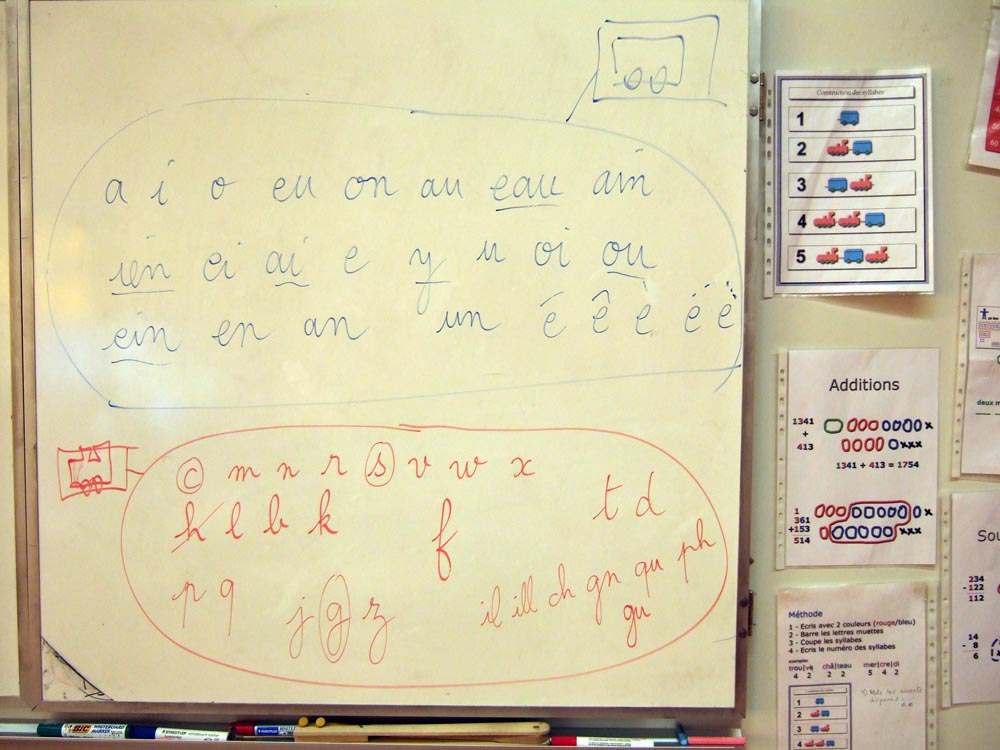 a i o eu on au eau ain
ien ei ai e y u oi ou
ein en an un é ê è ë
c m n r s v w x
h l b k f t d
p q j g z il ill ch gn qu ph
gu
Construction des syllabes
1
2
3
4
5
Additions
1341
+
413
x
xxx
1341 + 413 = 1754
1
361
+153
514
x
xxx
Méthode
1 - Ecris avec 2 couleurs (rouge/bleu)
2 - Barre les lettres muettes
3 - Coupe les syllabes
4 - Ecris le numéro des syllabes
exemples
trou|ve châ|teau mer|cre|di
4 2 2 2 5 4 2
1
2
3
4
deux m
Sou
234
-122
112
14
- 8
6
BIC
WHITEBOARD
MARKER
STAEDTLER
60